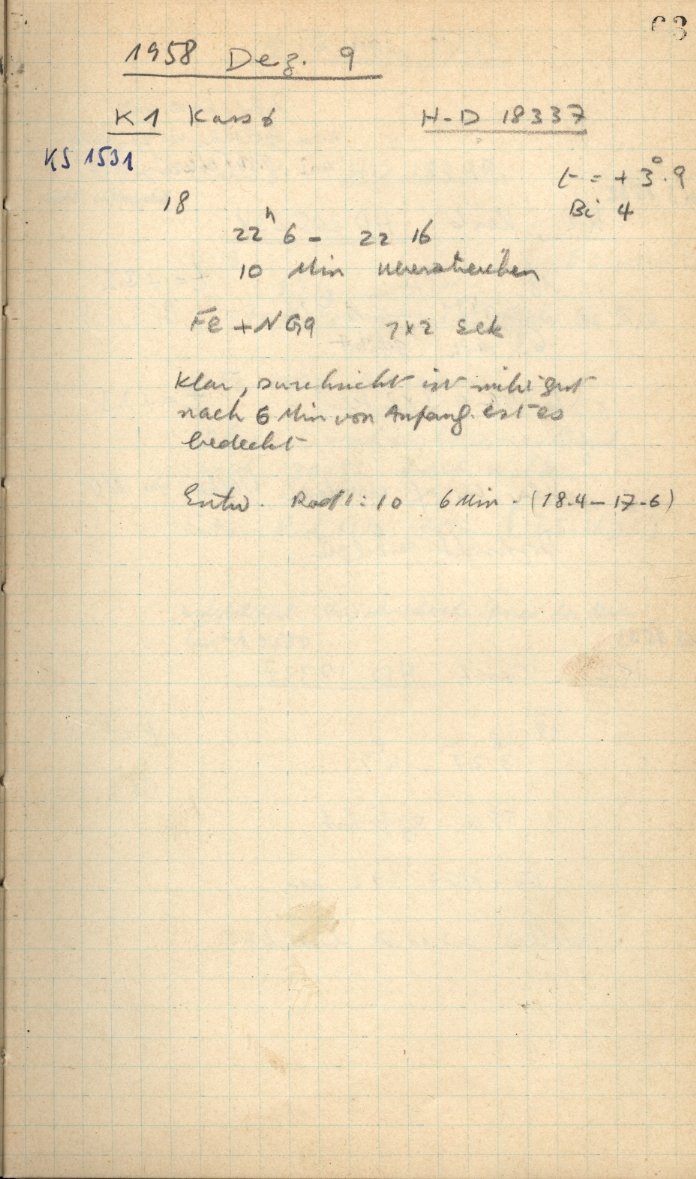 63
1958 Dez. 9
K1 Kass 6 H-D 18337
KS 1531
t = + 3°.9
18 Bi 4
22h 6 - 22 16
10 Min
Fe + NG9 7x2 sek
Klar, Durchsicht ist nicht gut
nach 6 Min von Anfang ist es
bedeckt
Entw. Rod 1:10 6 Min. (18.4 - 17.6)